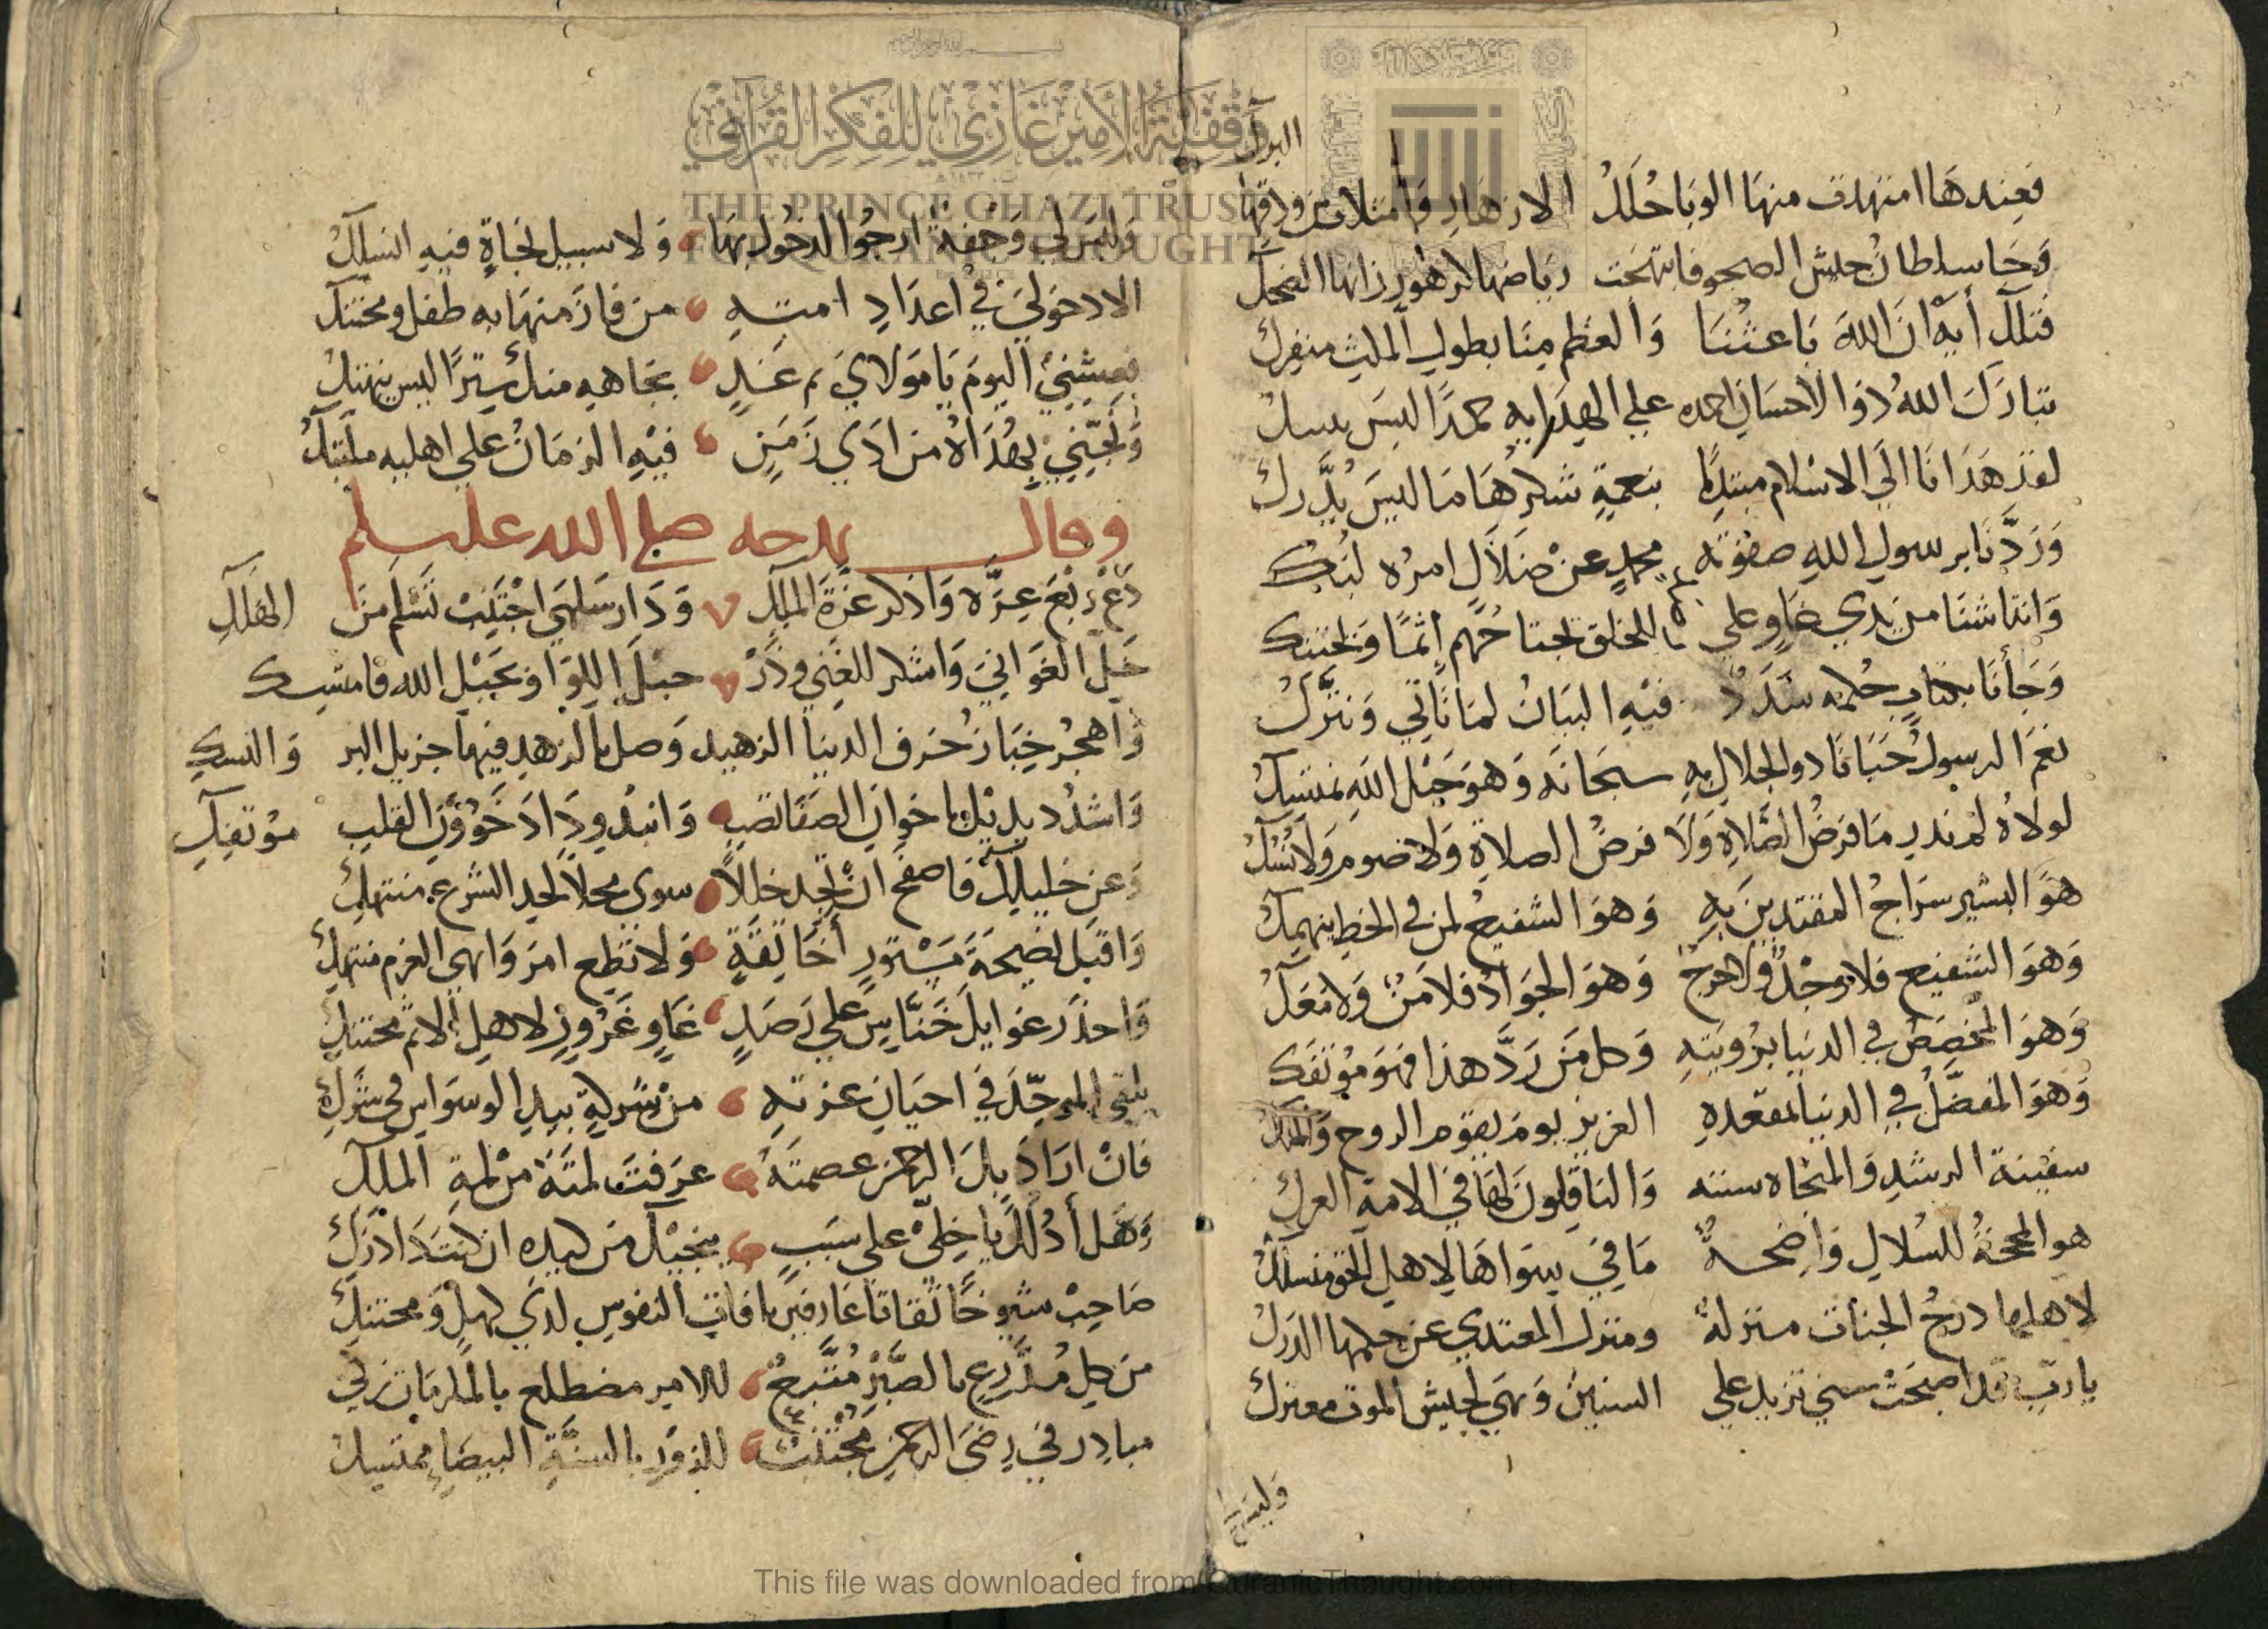 فعندها امتهدت منها الوباحلل الازهار وامتلات من ورقها البرك
وجا سلطان جيش الصحو فابتهجت رياضها لزهور زانها الضحك
فتلك أية ان الله باعثنا والعظم منا بطول الملث منفرك
تبارك الله ذوا الاحسان احمده علي الهدايه حمدا ليس
لقد هدانا الي الاسلام مبتديا بنعمة شكرها ما ليس يدرك
وردنا برسول الله صفوته محمد عن ضلال امره لبك
وانتاشنا من يدي غاو علي للخلق يجتاحهم إثما ويحتنك
وجأنا بكتاب حكمه سدد فيه البيان لما ناتي ونترك
نعم الرسول حبانا ذو الجلال به سبحانه وهو حبل الله نمتسك
لولاه لم ندر ما فرض الصلاة ولا فرض الصلاة ولا صوم ولا نسك
هو البشير سراج المقتدين به وهو الشفيع لمن في الخطا ينهمك
وهو الشفيع فلا وجد ولا حرج وهو الجواد فلا من ولا معك
وهو المخصص في الدنيا برويته وكل من رد هذا فهو مؤتفك
وهو المفضل في الدنيا لمقعده العزيز يوم يقوم الروح والملك
سفينة الرشد والمنجاه سنته والناقلون لها في الامة العرك
هو المحجة للسلاك واضحة ما في سواها لاهل الحق منسلك
لاهلها درج الجنات منزلة ومنزل المعتدي عن حكمها الدرك
يا رب قد اصبحت سني تزيد علي الستين وهي لجيش الموت معترك
وليس لي
THE PRINCE GHAZI TRUST
FOR QURANIC THOUGHT
وقفية الأمير غازي للفكر القرآني
وليس لي وجفة ارجوا الدخول بها ولا سبيل نجاة فيه انسلك
الا دخولي في أعداد امته من فاز منها به طفل ومحتنك
فعشني اليوم يا مولاي م غد بجاهه منك سترا ليس ينهتك
ونجيني بهداه من اذي زمن فيه الزمان علي اهليه ملتبك
وقال يمدحه صلى الله عليه وسلم
دع ربع عزه واذكر عزة الملك ودار سلمي اجتنب تسلم من الهلك
خل الغواني واشكر للغني وذر حبل اللوا وبحبل الله فامتسك
واهجر خبا زخرف الدنيا الزهيد وصل بالزهد فيها جزيل البر والنسك
واشدد يديك باخوان الصفا تصب وانبذ وداد خؤون القلب مؤتفك
وعن خليلك فاصفح ان تجد خللا سوي محلا لحد الشرع منتهك
واقبل نصيحة مستور أخا ثقة ولا تطع امر واهي العزم منتهك
واحذر غوايل خناس علي رصد غاو غرور لاهل الاثم محتنك
يلقي الموحد في احيان عزته من شركه بيد الوسواس في شرك
فان اراد بك الرحمن عصمته عرفت لمته من لمة الملك
وهل أدلك يا خلي علي سبب ينجيك من كيده ان كنت ذا درك
صاحب شيوخا ثقاتا عارفين بافات النفوس لدي كهل ومحتنك
من كل مدرع بالصبر متبع للامر مضطلع بالمكرمات زكي
مبادر في رضي الرحمن مجتنب للزور بالسنة البيضاء ممتسك
This file was downloaded from QuranicThought.com